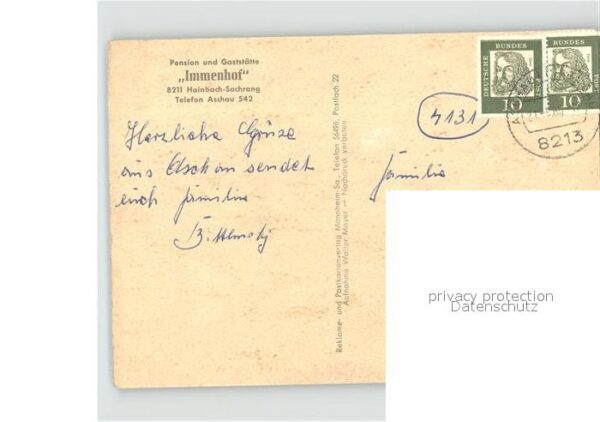 Pension und Gaststätte
„Immenhof"
8211 Hainbach-Sachrang
Telefon Aschau 542
Herzliche Grüße
aus Aschau sendet
euch Familie
Reklame- und Postkartenverlag Mannheim-Sa., Telefon 56496, Postfach 22
Aufnahme Walter Mayer — Nachdruck verboten
4131
Familie
DEUTSCHE BUNDES POST
10
BUNDES POST
10
8213
privacy protection
Datenschutz